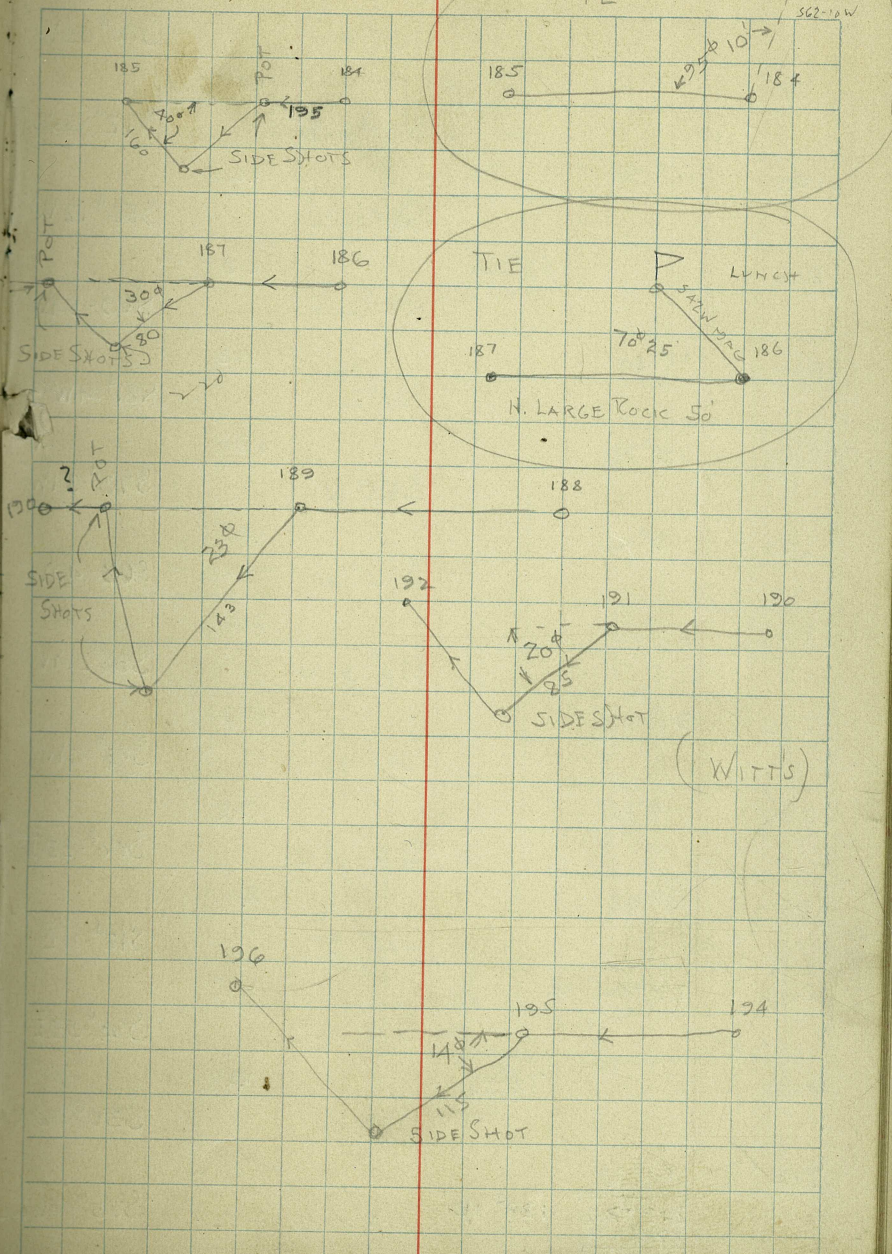 S62-10W
185 POT 184
195
40°
160
SIDE SHOTS
185 184
95° 10'
POT 187 186
30°
80
SIDE SHOTS
TIE
LUNCH
S42W MAG
70° 25
187 186
N. LARGE ROCK 50'
? POT 189 188
190
23°
143
SIDE
SHOTS
192 191 190
20°
85
SIDE SHOT
(WITTS)
196
195 194
14°
115
SIDE SHOT